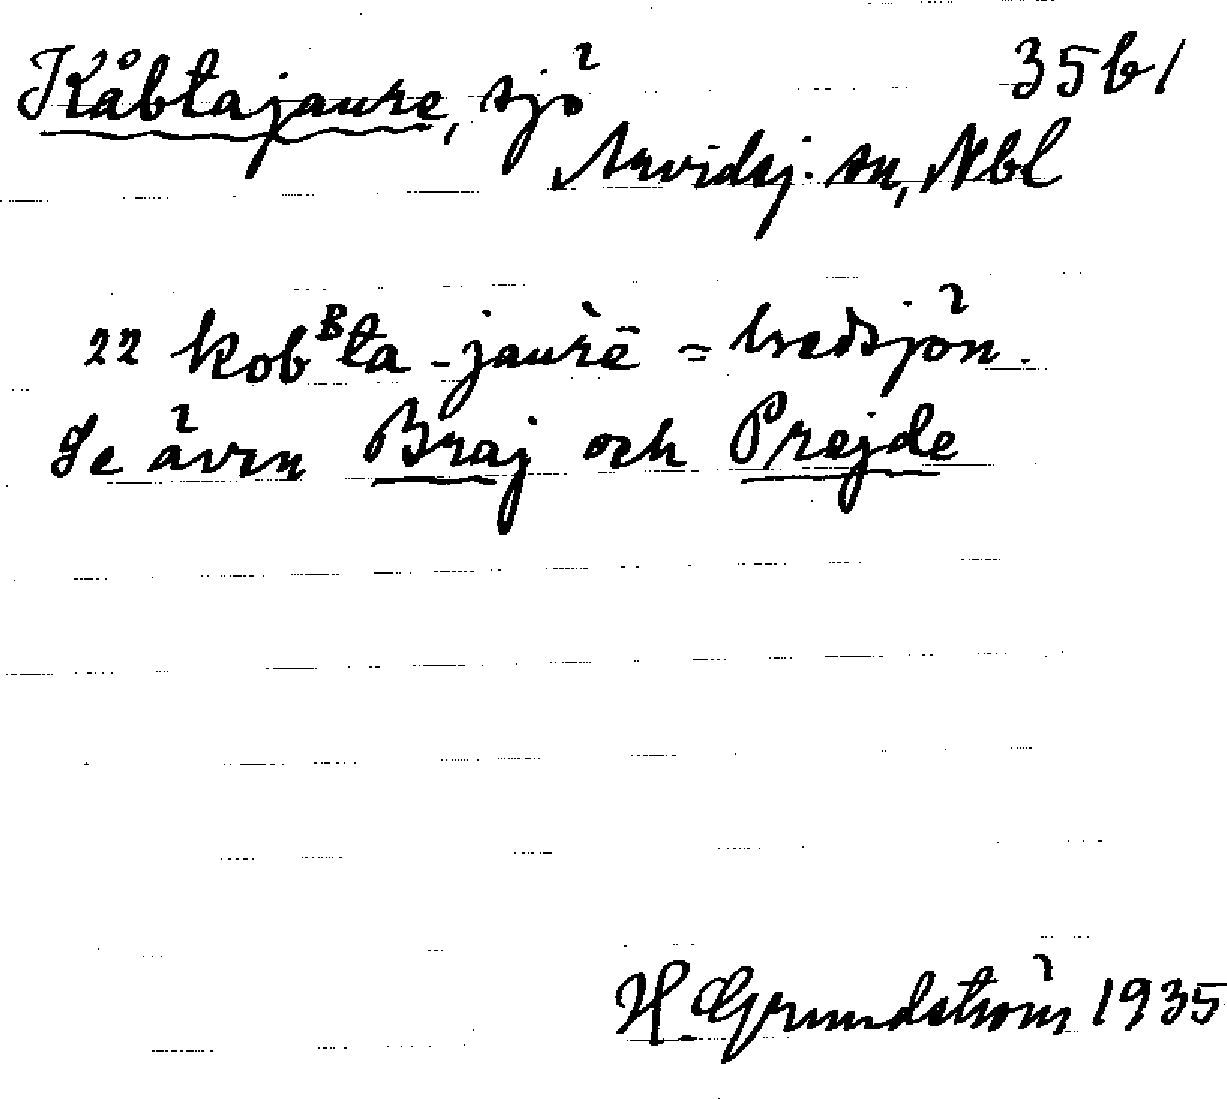 Kåbtajaure, sjö 35b1
Arvidsj. sn, Nbl
22 kobᴮta-jaurē = bredsjön.
Se även Braj och Prejde
H. Grundström 1935